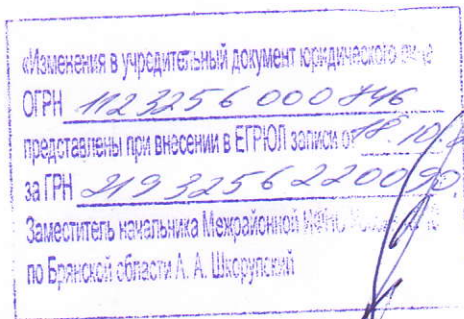 «Изменения в учредительный документ юридического лица
ОГРН 1123256000846
представлены при внесении в ЕГРЮЛ записи от 18.10.
за ГРН 2193256220090
Заместитель начальника Межрайонной ИФНС
по Брянской области А. А. Шкорупский